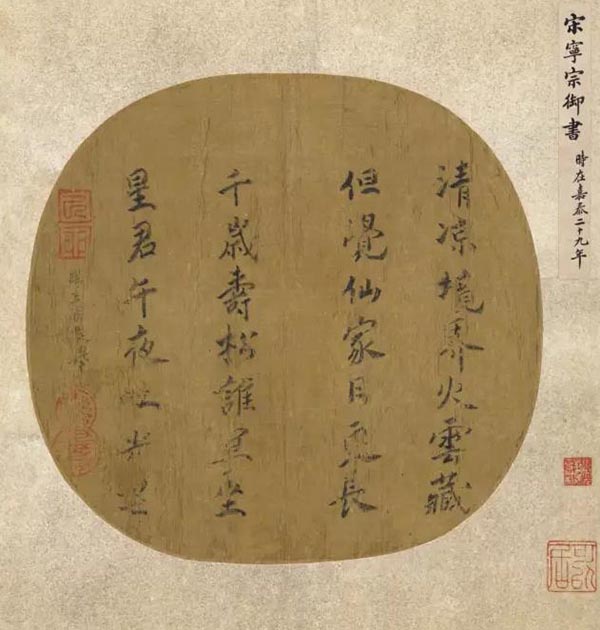 宋寧宗御書 時在嘉泰二十九年
清凉境界火雲藏
但覺仙家日更長
千歲壽松誰並坐
星君午夜吐光芒